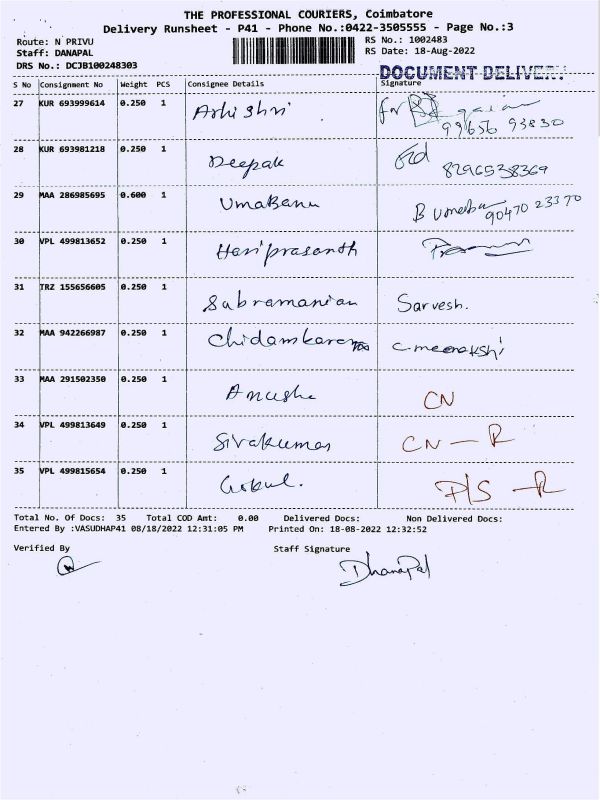 THE PROFESSIONAL COURIERS, Coimbatore
Delivery Runsheet - P41 - Phone No.:0422-3505555 - Page No.:3
Route: N PRIVU RS No.: 1002483
Staff: DANAPAL RS Date: 18-Aug-2022
DRS No.: DCJB100248303
DOCUMENT DELIVERY
S No Consignment No Weight PCS Consignee Details Signature
27 KUR 693999614 0.250 1 Ashi shri for
99656 93830
28 KUR 693981218 0.250 1 Deepak
8296538369
29 MAA 286985695 0.600 1 UmaBanu B Umaba
90470 23370
30 VPL 499813652 0.250 1 Hariprasanth
31 TRZ 155656605 0.250 1 Subramanian Sarvesh.
32 MAA 942266987 0.250 1 C meenakshi
33 MAA 291502350 0.250 1 Anusha CN
34 VPL 499813649 0.250 1 Sivakumar CN - R
35 VPL 499815654 0.250 1 Gokul. P/S - R
Total No. Of Docs: 35 Total COD Amt: 0.00 Delivered Docs: Non Delivered Docs:
Entered By :VASUDHAP41 08/18/2022 12:31:05 PM Printed On: 18-08-2022 12:32:52
Verified By Staff Signature
DhanaPal